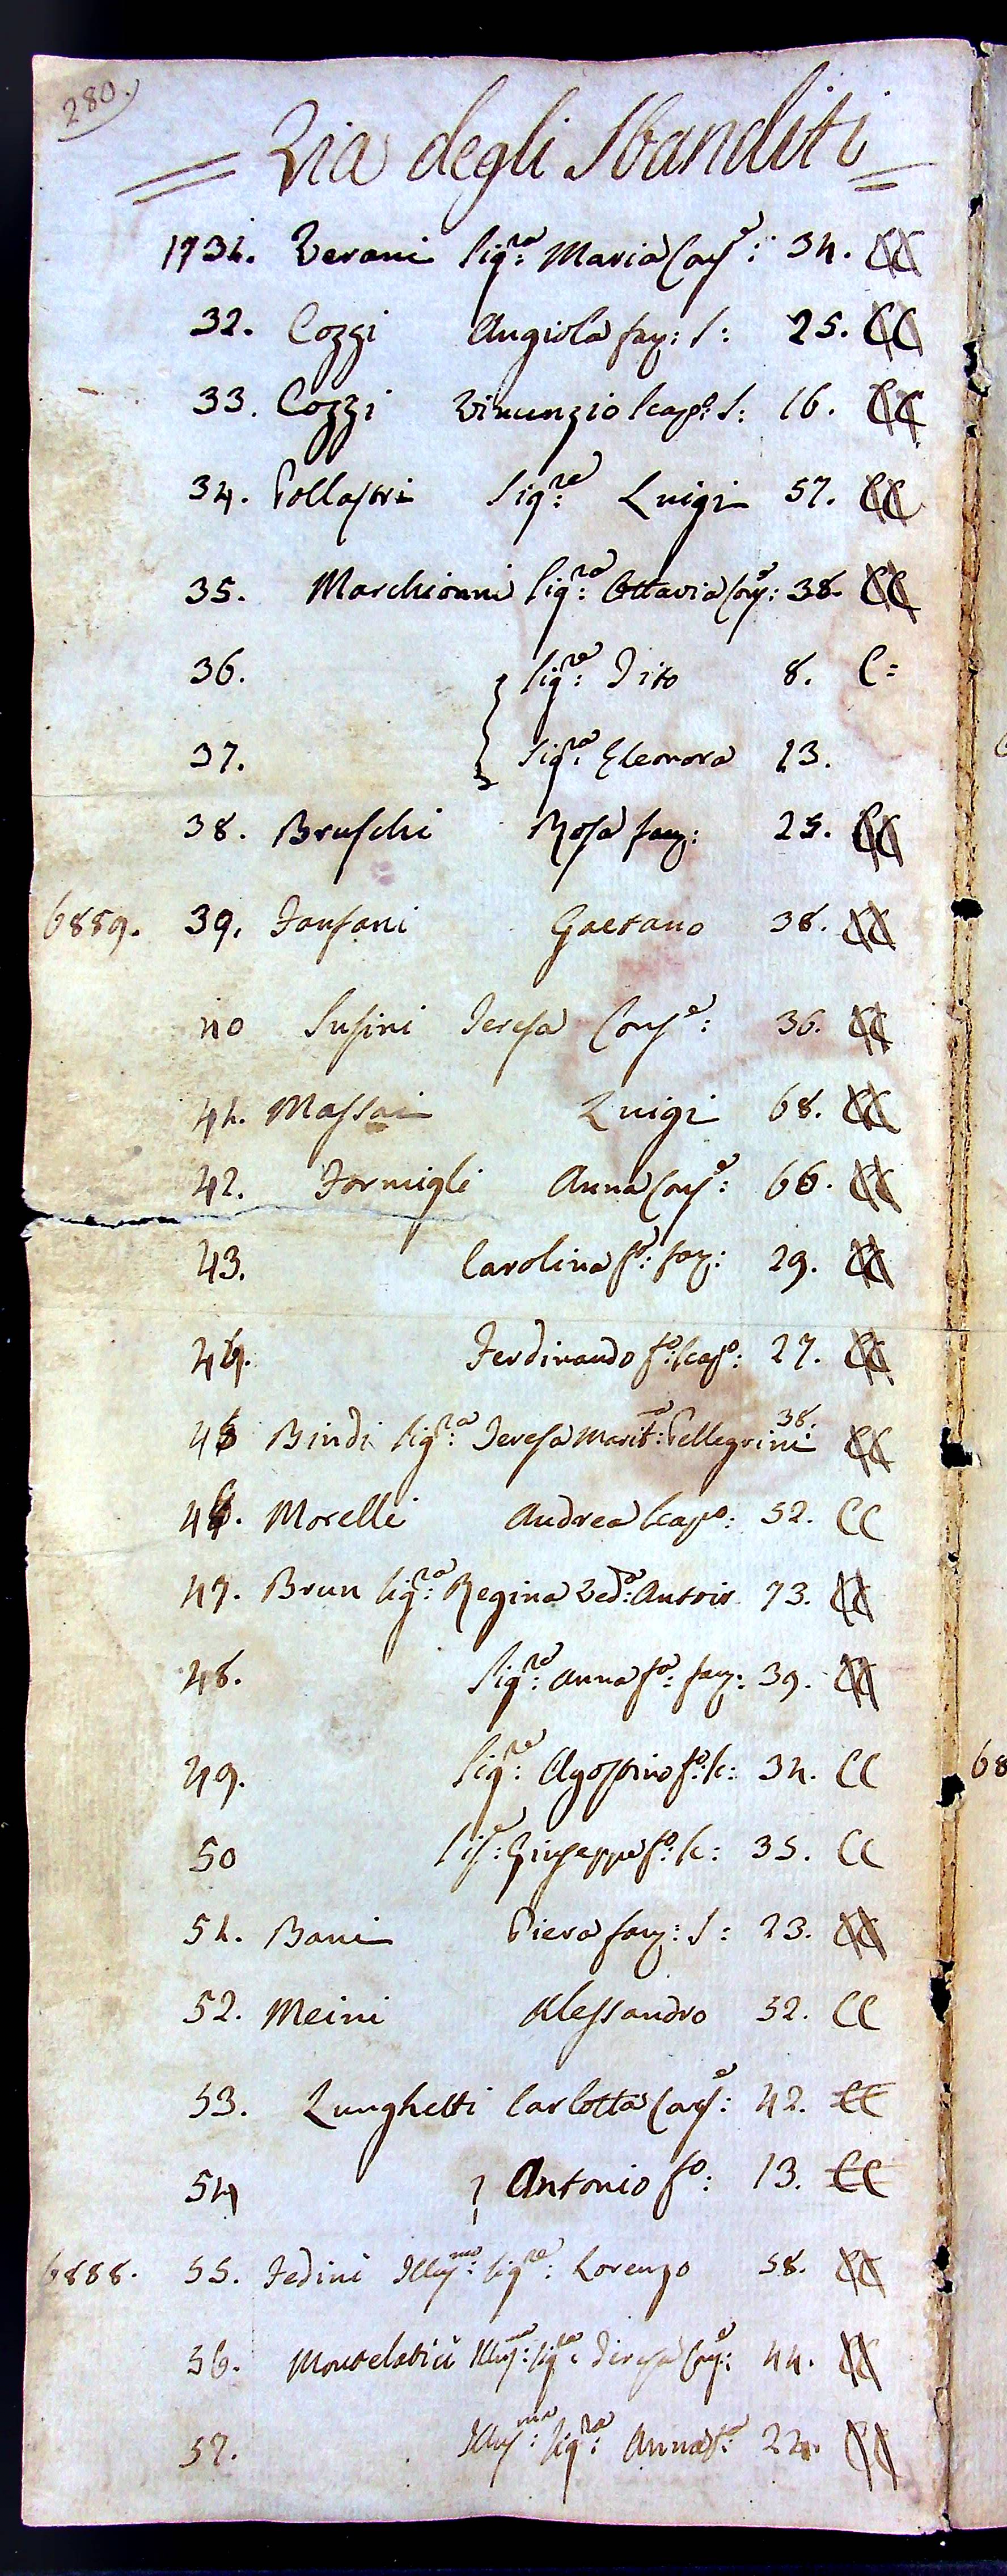 280.
= Via degli Sbanditi =
1731. Verani Sig.ra Maria Cons.e: 34. CC
32. Cozzi Angiola fan: S: 25. CC
33. Cozzi Vincenzio Scap.o: S: 16. CC
34. Pollastri Sig.re Luigi 57. CC
35. Marchionni Sig.ra Ottavia Cons.e: 38. CC
36. Sig.re Tito 8. C=
37. Sig.ra Eleonora 13.
38. Bruschi Rosa fan: 25. CC
6859. 39. Fanfani Gaetano 38. CC
40 Susini Teresa Cons.e: 36. CC
41. Massai Luigi 68. CC
42. Formigli Anna Cons.e: 66. CC
43. Carolina f.a: fan: 29. CC
44. Ferdinando f.o: Scap.o: 27. CC
45 Bindi Sig.ra Teresa Marit.a: Pellegrini 38. CC
46. Morelli Andrea Scap.o: 52. CC
47. Brun Sig.ra Regina Ved.a: Autrir 73. CC
48. Sig.ra Anna f.a: fan: 39. CC
49. Sig.re Agostino f.o: Sc: 31. CC
50 Sig.e: Giuseppe f.o: Sc: 35. CC
51. Bani Piera fan: S: 23. CC
52. Meini Alessandro 52. CC
53. Lunghetti Carlotta Cons.e: 42. CC
54 Antonio f.o: 13. CC
6888. 55. Fedini Illus.mo: Sig.re: Lorenzo 58. CC
56. Montelatici Illus.ma: Sig.ra: Teresa Cons.e: 44. CC
57. Illus.ma: Sig.ra: Anna f.a: 22. CC